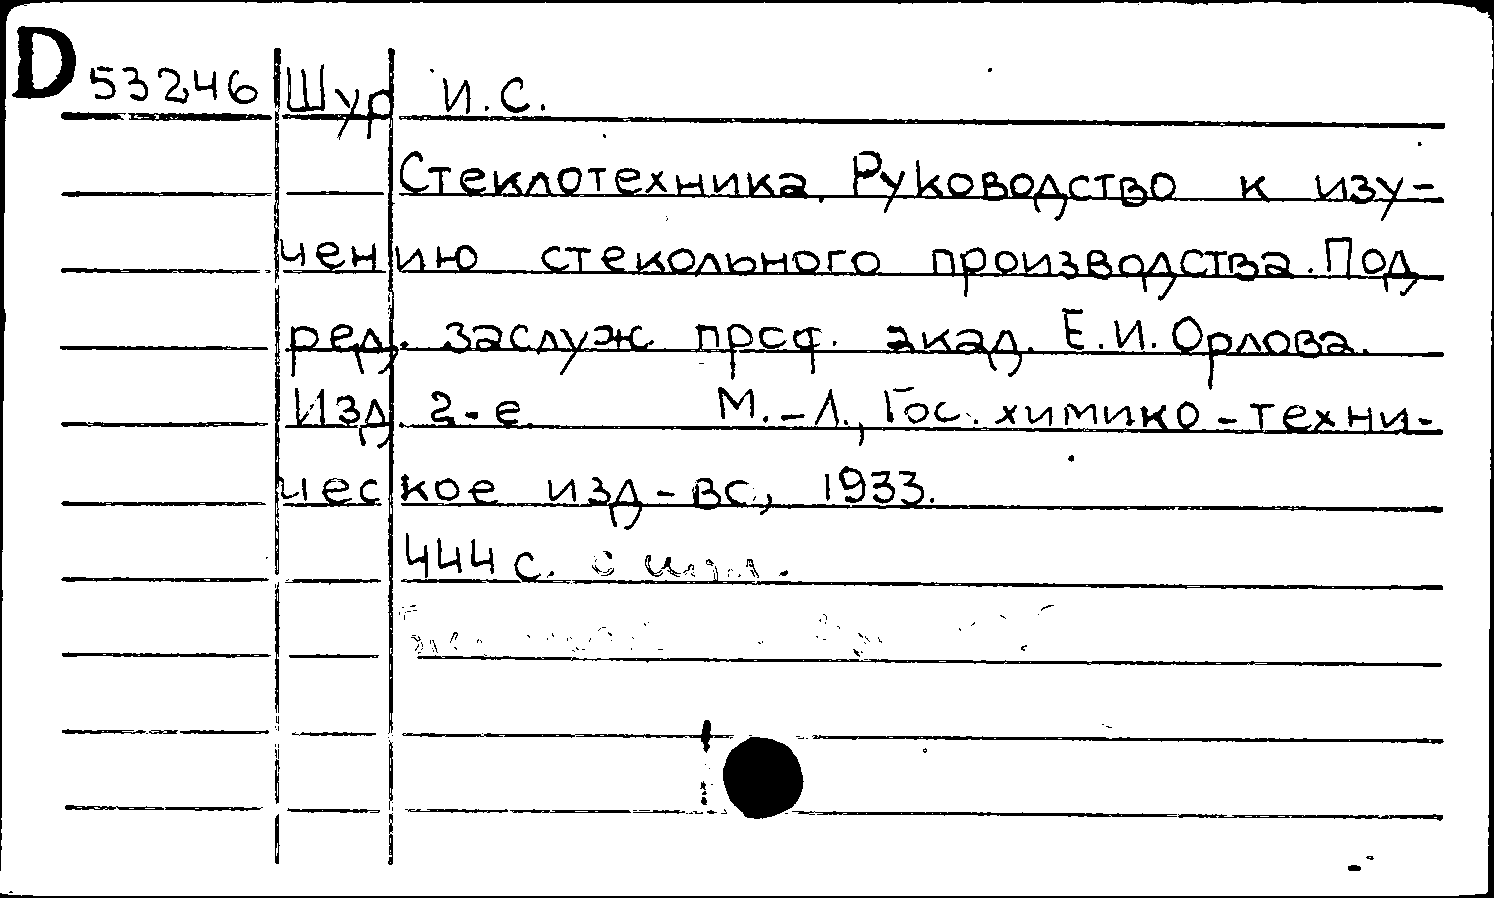 D 53246 Шур И.С.
Стеклотехника. Руководство к изу-
чению стекольного производства. Под
ред. заслуж. проф. акад. Е.И. Орлова.
Изд. 2-е. М.-Л., Гос. химико-техни-
ческое изд-во, 1933.
444 с. с илл.